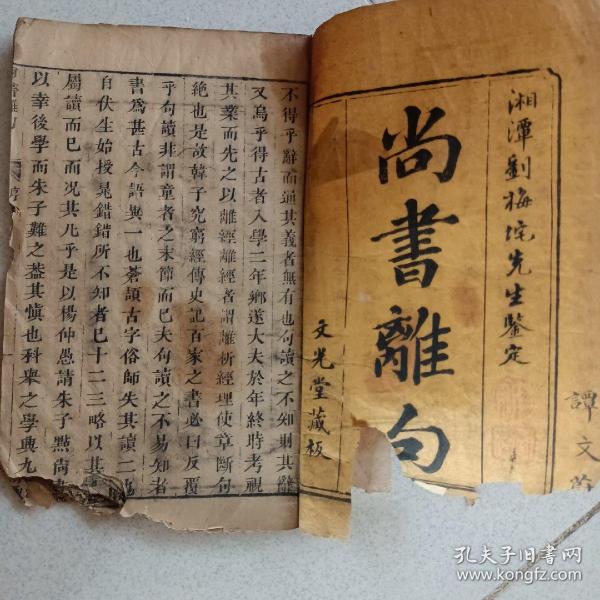 湘潭劉梅垞先生鑒定
尚書離句
文光堂藏板
譚文
不得乎辭而通其義者無有也句讀之不知則其辭
又烏乎得古者入學二年鄉遂大夫於年終時考視
其業而先之以離經離經者謂離析經理使章斷句
絶也是故韓子究窮經傳史記百家之書必曰反覆
乎句讀非謂童者之末節而已夫句讀之不易知者
書爲甚古今語異一也蒼頡古字俗師失其讀二也
自伏生始授晁錯錯所不知者已十二三略以其
屬讀而已而况其凡乎是以楊仲愚請朱子點尚書
以幸後學而朱子難之葢其愼也科舉之學興九
序
孔夫子旧书网
www.kongfz.com